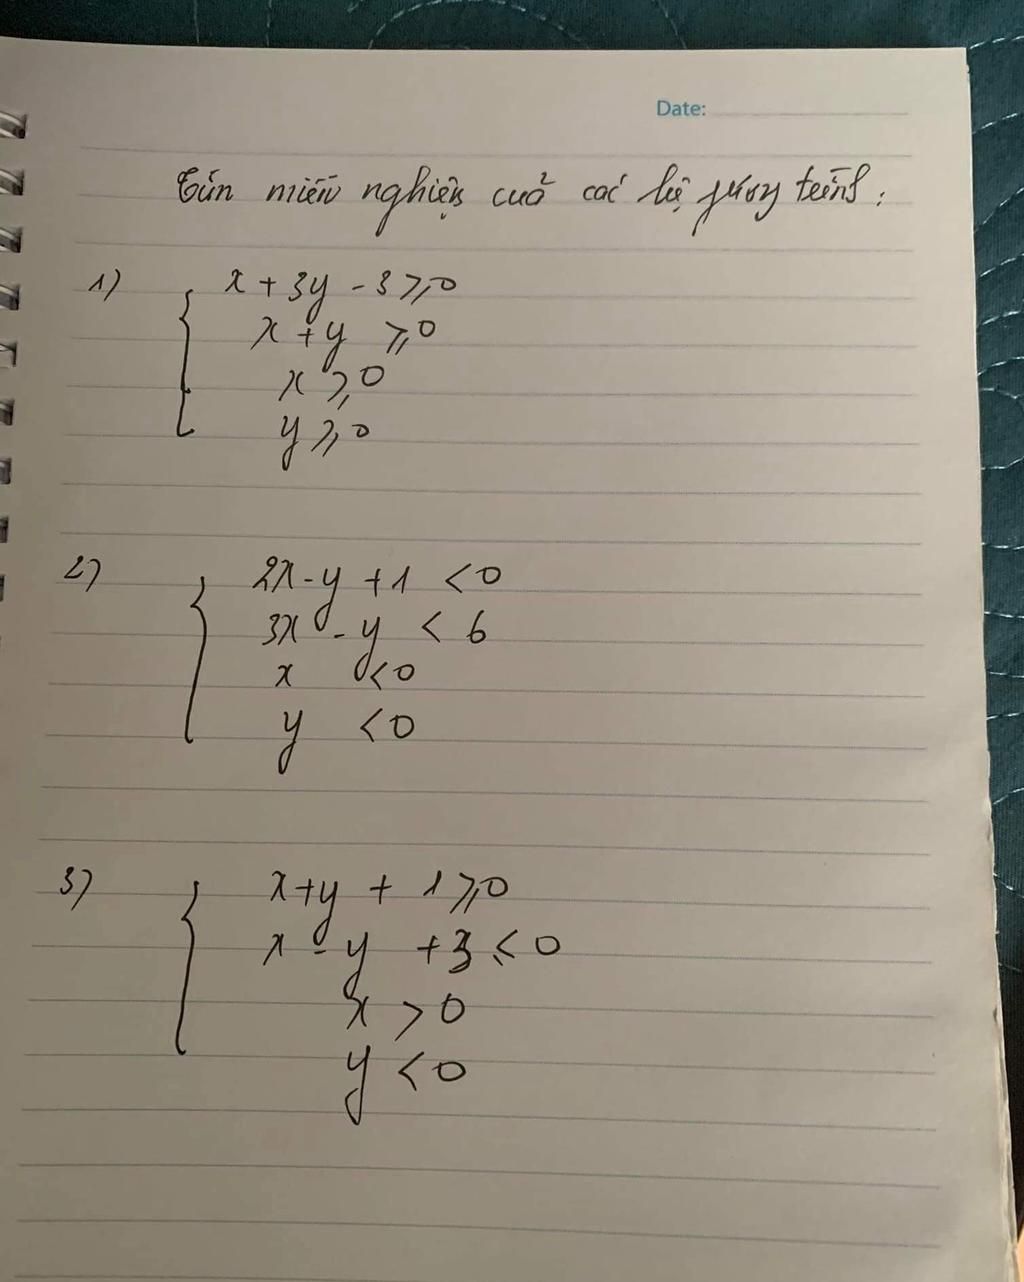 Date:
Tìm miền nghiệm của các hệ phương trình :
1) x + 3y - 3 ≥ 0
x + y ≥ 0
x ≥ 0
y ≥ 0
2) 2x - y + 1 < 0
3x - y < 6
x < 0
y < 0
3) x + y + 1 ≥ 0
x - y + 3 ≤ 0
x > 0
y < 0